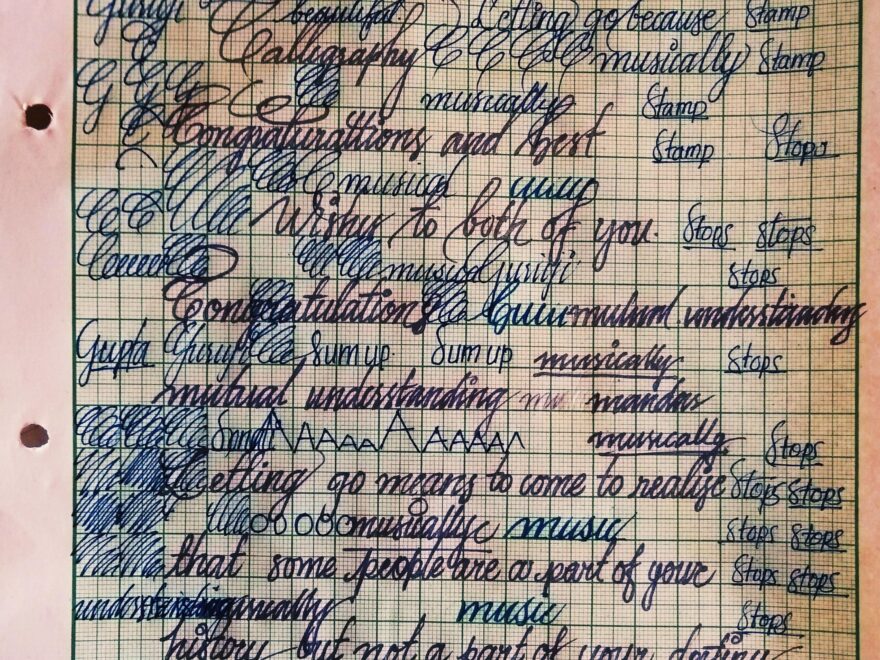 Guruji beautiful Letting go because Stamp
Calligraphy C C C C musically Stamp
G G G C musically Stamp
Congraturattions and best Stamp Stops
musical
Wishes to both of you. Stops Stops
musical Guruji Stops
Congratulations mutual understanding
Gupta Guruji Sum up. Sum up musically Stops
mutual understanding mu mandas
AAAAA AAAAA musically Stops
Letting go means to come to realize Stops Stops
musically music Stops Stops
that some people are a part of your Stops Stops
understanding musically music Stops
history but not a part of your destiny